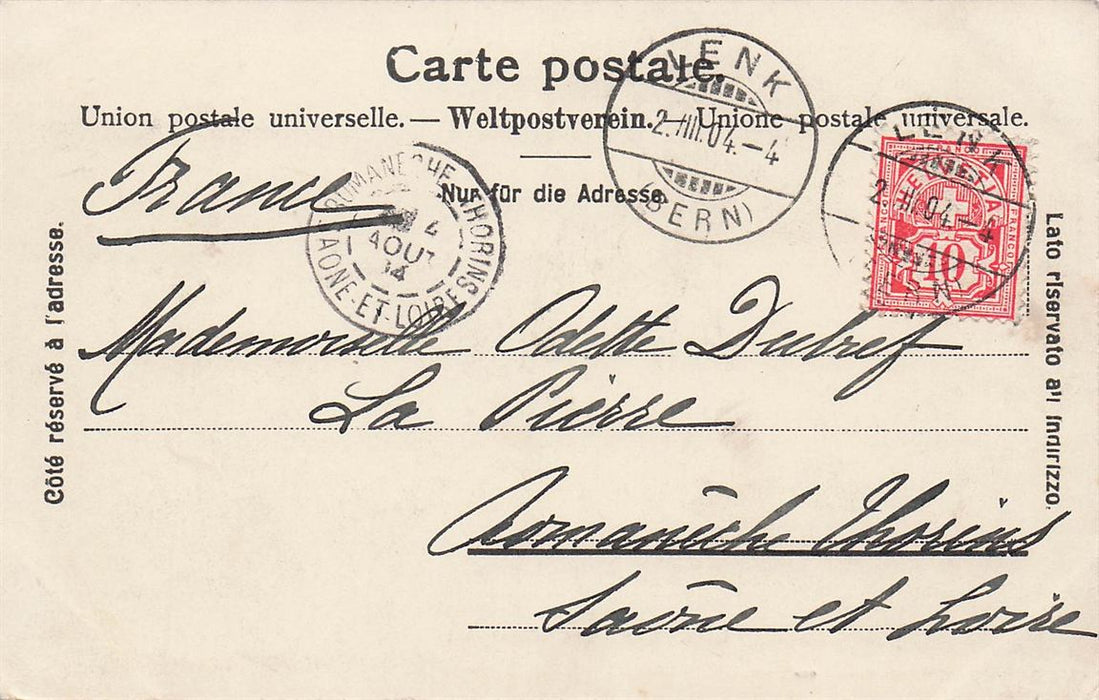 Carte postale.
Union postale universelle. — Weltpostverein. — Unione postale universale.
Nur für die Adresse.
Côté réservé à l'adresse.
Lato riservato all' indirizzo.
LENK
2. VIII. 04. – 4
(BERN)
LENK
2. VIII. 04. – 4
HELVETIA
FRANCO
10
ROMANECHE-THORINS
4
AOUT
04
SAONE-ET-LOIRE
France
Mademoiselle Odette Dubref
La Pierre
Romanèche Thorins
Saône et Loire